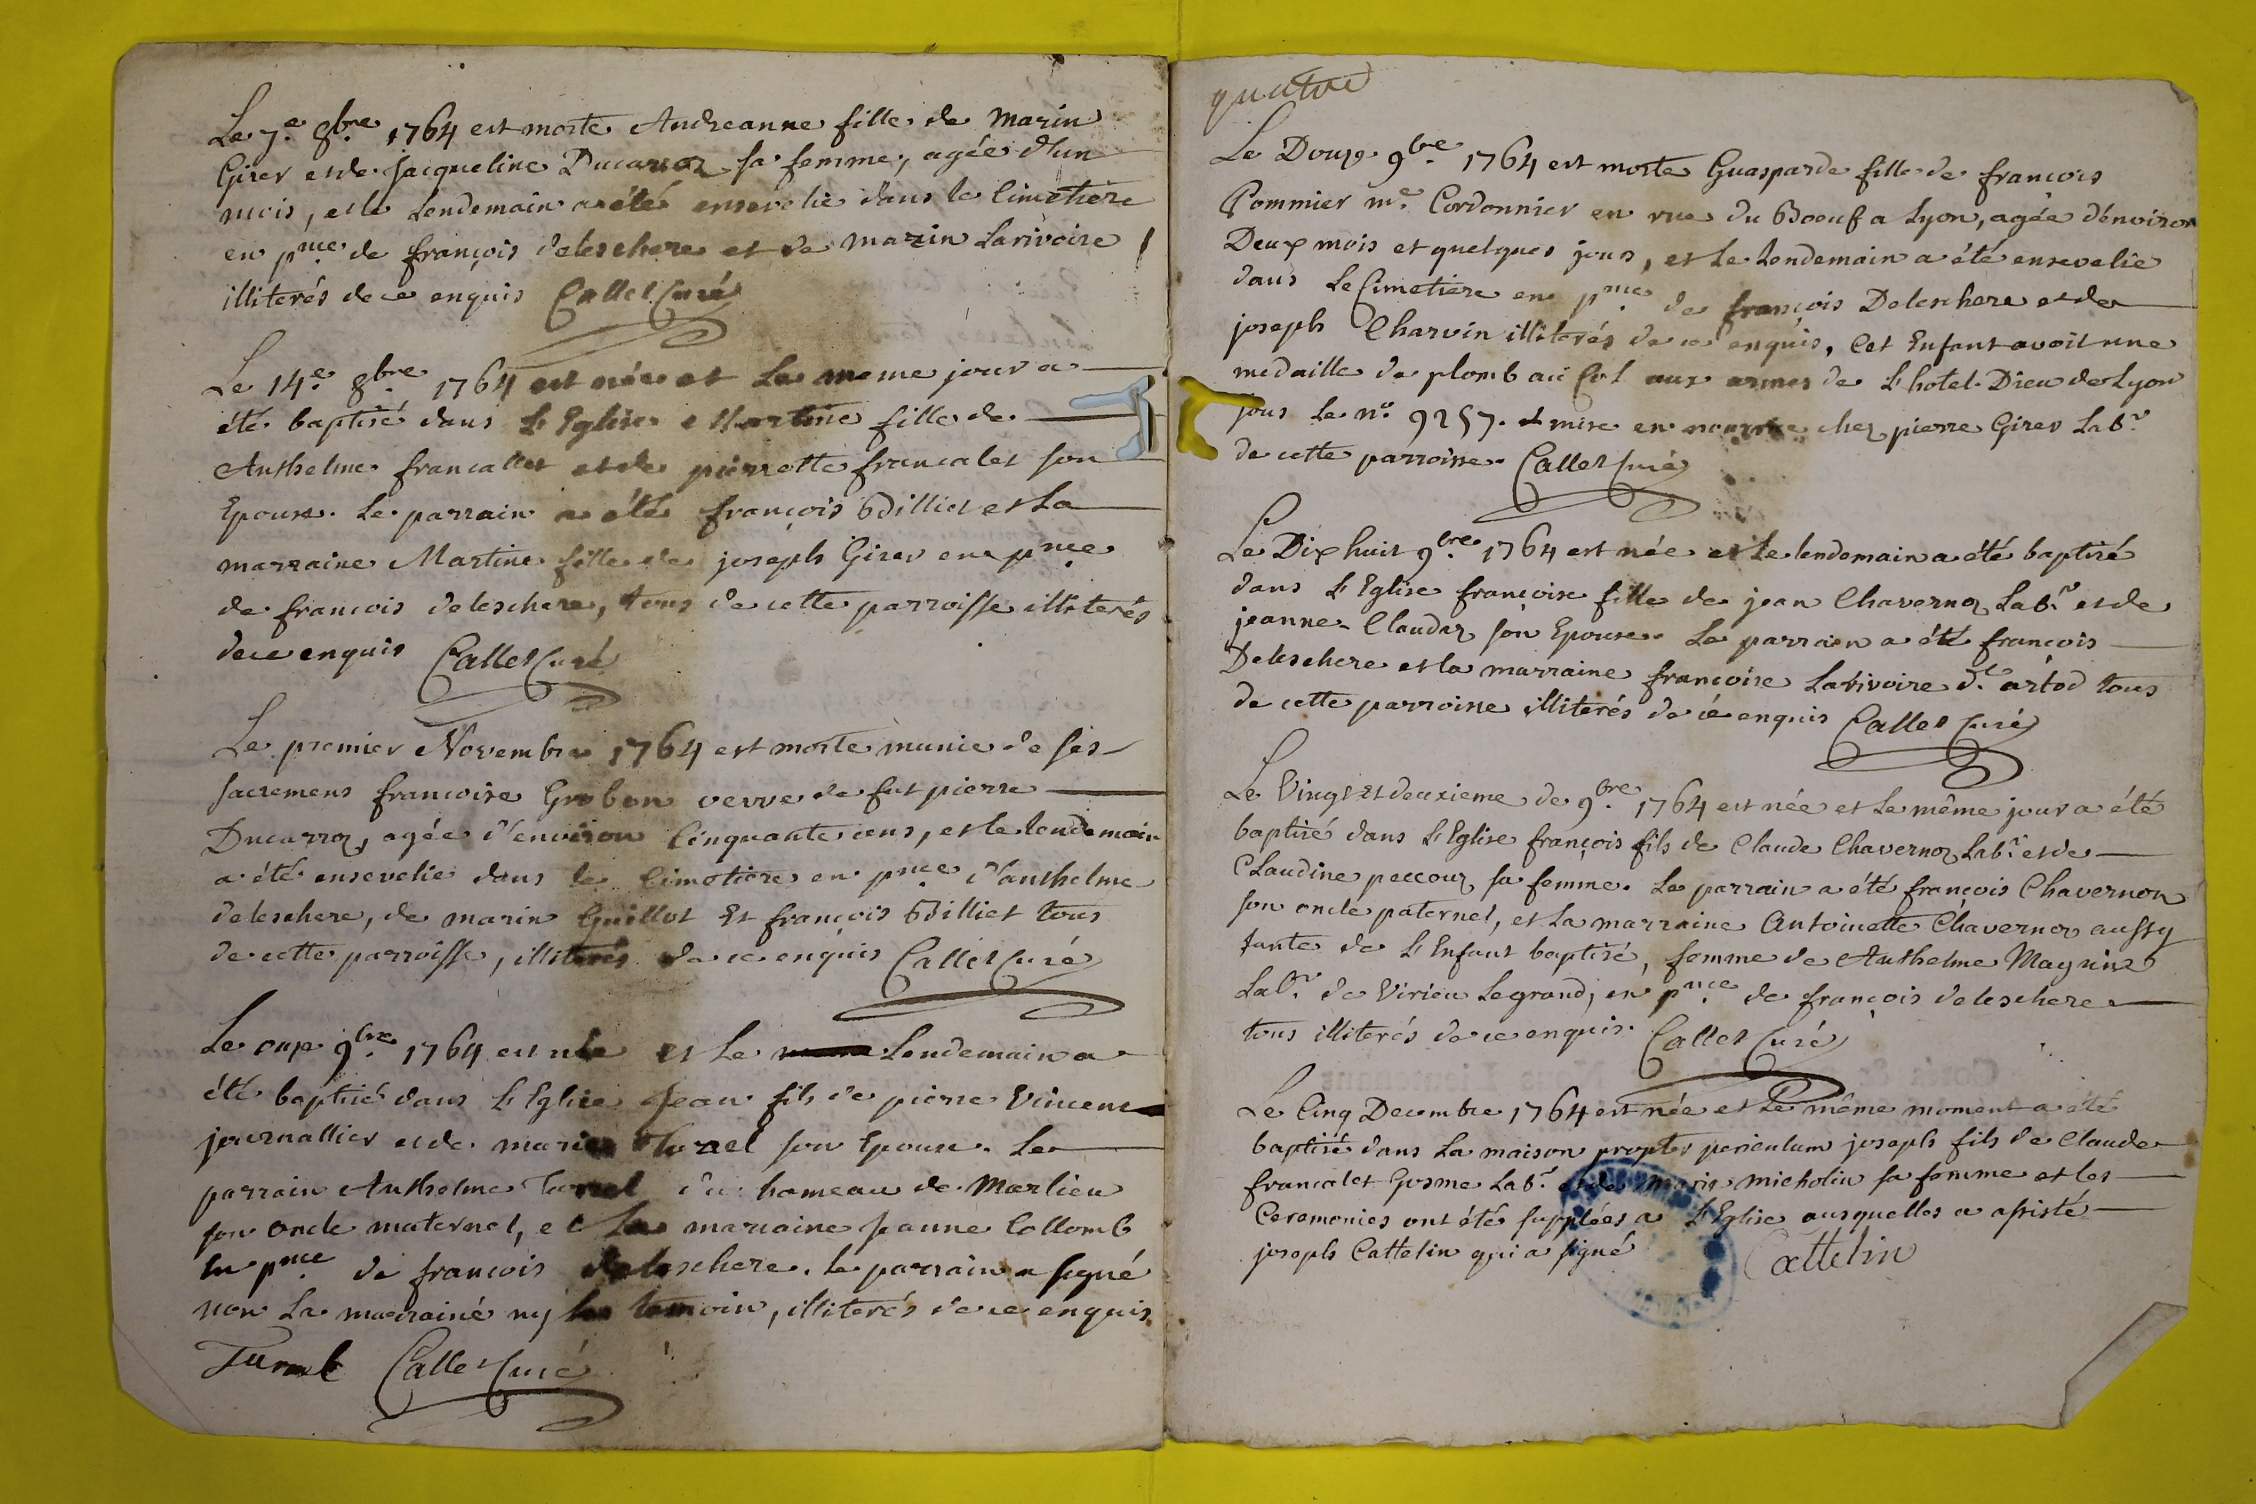 Le 7.e 8bre 1764 est morte Andreanne fille de Marin
Girer et de Jacqueline Ducarroz sa femme, agée d'un
mois, et le Lendemain a été ensevelie dans le Cimetiere
en pnce de françois deleschere et de marin Larivoire
illiterés de ce enquis Callet Curé
Le 14.e 8bre 1764 est née et Le meme jour a
été baptisé dans L'Eglise Martine fille de
Anthelme francallet et de pierrette francalet son
Epouse. Le parrain a été françois Billiet et La
marraine Martine fille de joseph Girer en pnce
de francois deleschere, tous de cette parroisse illiterés
de ce enquis Callet Curé
Le premier Novembre 1764 est morte munie de ses
sacremens francoise Grobon verve de fut pierre
Ducarroz, agée d'environ Cinquante ans, et le lendemain
a été ensevelie dans le Cimetiere en pnce d'anthelme
deleschere, de marin Guillot Et françois Billiet tous
de cette parroisse, illiterés de ce enquis Callet Curé
Le onze 9bre 1764 est née et Le Lendemain a
été baptisé dans L'Eglise Jean fils de pierre Vincent
journallier et de marie Turel son Epouse. Le
parrain Anthelme Turel du hameau de Marlieu
son oncle maternel, et La marraine Jeanne Collomb
En pnce de francois deleschere. le parrain a signé
non La marrainé ny les temoin, illiterés de ce enquis
Turel Callet Curé
quatre
Le Douze 9bre 1764 est morte Guasparde fille de francois
Pommier me. Cordonnier en rue du Boeuf a Lyon, agée d'environ
Deux mois et quelques jours, et Le Lendemain a été ensevelie
dans Le Cimetiere en pnce de françois Deleschere et de
joseph Charvin illiterés de ce enquis, Cet Enfant avoit une
medaille de plomb au Col aux armes de L'hotel-Dieu de Lyon
sous Le no. 9257. et mise en nourrice chez pierre Girer Labr.
de cette parroisse. Callet Curé
Le Dix huit 9bre 1764 est née et Le lendemain a été baptisé
dans L'Eglise françoise fille de jean Chavernoz Labr. et de
jeanne Claudaz son Epouse. Le parrain a été françois
Deleschere et la marraine françoise Larivoire de. artod tous
de cette parroisse illiterés de ce enquis Callet Curé
Le Vingt Et deuxieme de 9bre 1764 est née et Le même jour a été
baptisé dans L'Eglise françois fils de Claude Chavernoz Labr. et de
Claudine peccouz sa femme. Le parrain a été françois Chavernon
son oncle paternel, et La marraine Antoinette Chavernoz aussy
tante de L'Enfant baptisé, femme de Anthelme Magnin
Labr. de Virieu Legrand, en pnce de françois deleschere
tous illiterés de ce enquis. Callet Curé
Le Cinq Decembre 1764 est née et Le même moment a été
baptisé dans La maison propter periculum joseph fils de Claude
francalet Gosme Labr. et de marie micholin sa femme et les
Ceremonies ont été supplées a L'Eglise ausquelles a assisté
joseph Cattelin qui a signé Cattelin